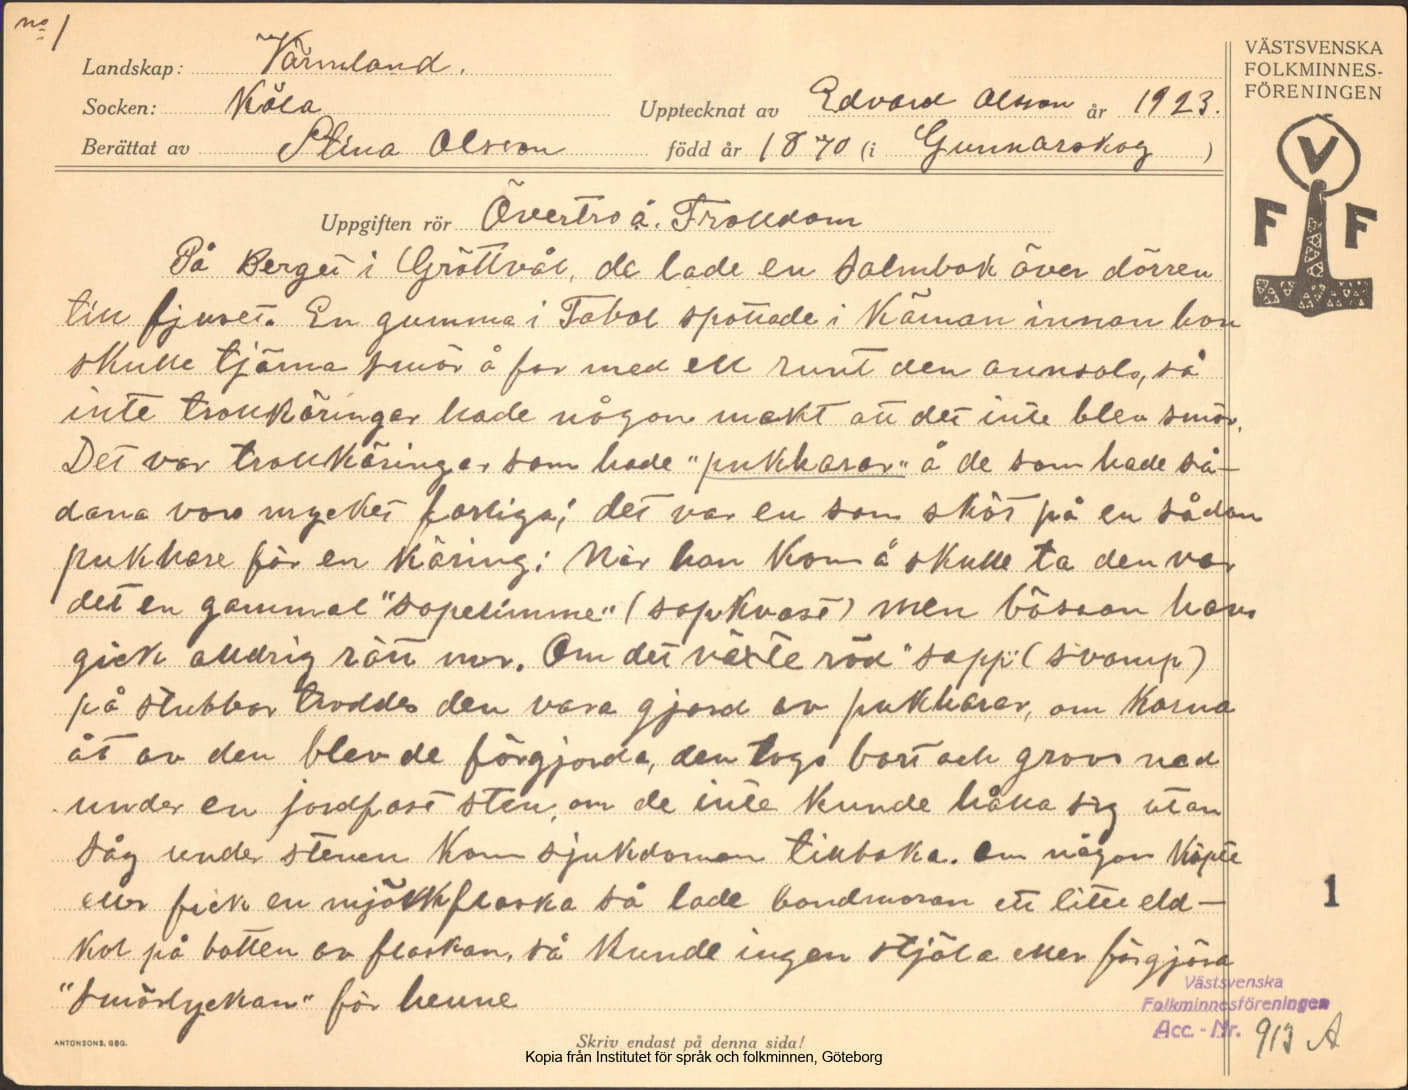 no 1
Landskap: Värmland.
Socken: Köla
Upptecknat av Edvard Olsson år 1923.
Berättat av Stina Olsson född år 1870 (i Gunnarskog )
VÄSTSVENSKA
FOLKMINNES-
FÖRENINGEN
V
F F
Uppgiften rör Övertro å. Trolldom
På Berget i Gröttvål, de lade en Salmbok över dörren
till fjuset. En gumma i Tobol spottade i Kärnan innan hon
skulle tjärna smör å for med ell runt den annsols, så
inte trollkäringar hade någon makt att det inte blev smör.
Det var trollkäringar som hade "pukharar" å de som hade så-
dana voro mycket farliga; det var en som sköt på en sådan
pukhare för en käring; När han kom å skulle ta den var
det en gammal "sopelimme" (sopkvast) men bössan hans
gick alldrig rätt mer. Om det växte röd "sopp" (svamp)
på stubbar troddes den vara gjord av pukharar, om korna
åt av den blev de förgjorda, den togs bort och grovs ned
under en jordfast sten, om de inte kunde hålla sig utan
såg under stenen kom sjukdomen tillbaka. om någon köpte
eller fick en mjölkflaska så lade bondmoran ett litet eld-
kol på botten av flaskan, så kunde ingen stjäla eller förgjöra
"smörlyckan" för henne
1
Västsvenska
Folkminnesföreningen
Acc. - Nr. 913 A
ANTONSONS, GBG.
Skriv endast på denna sida!
Kopia från Institutet för språk och folkminnen, Göteborg